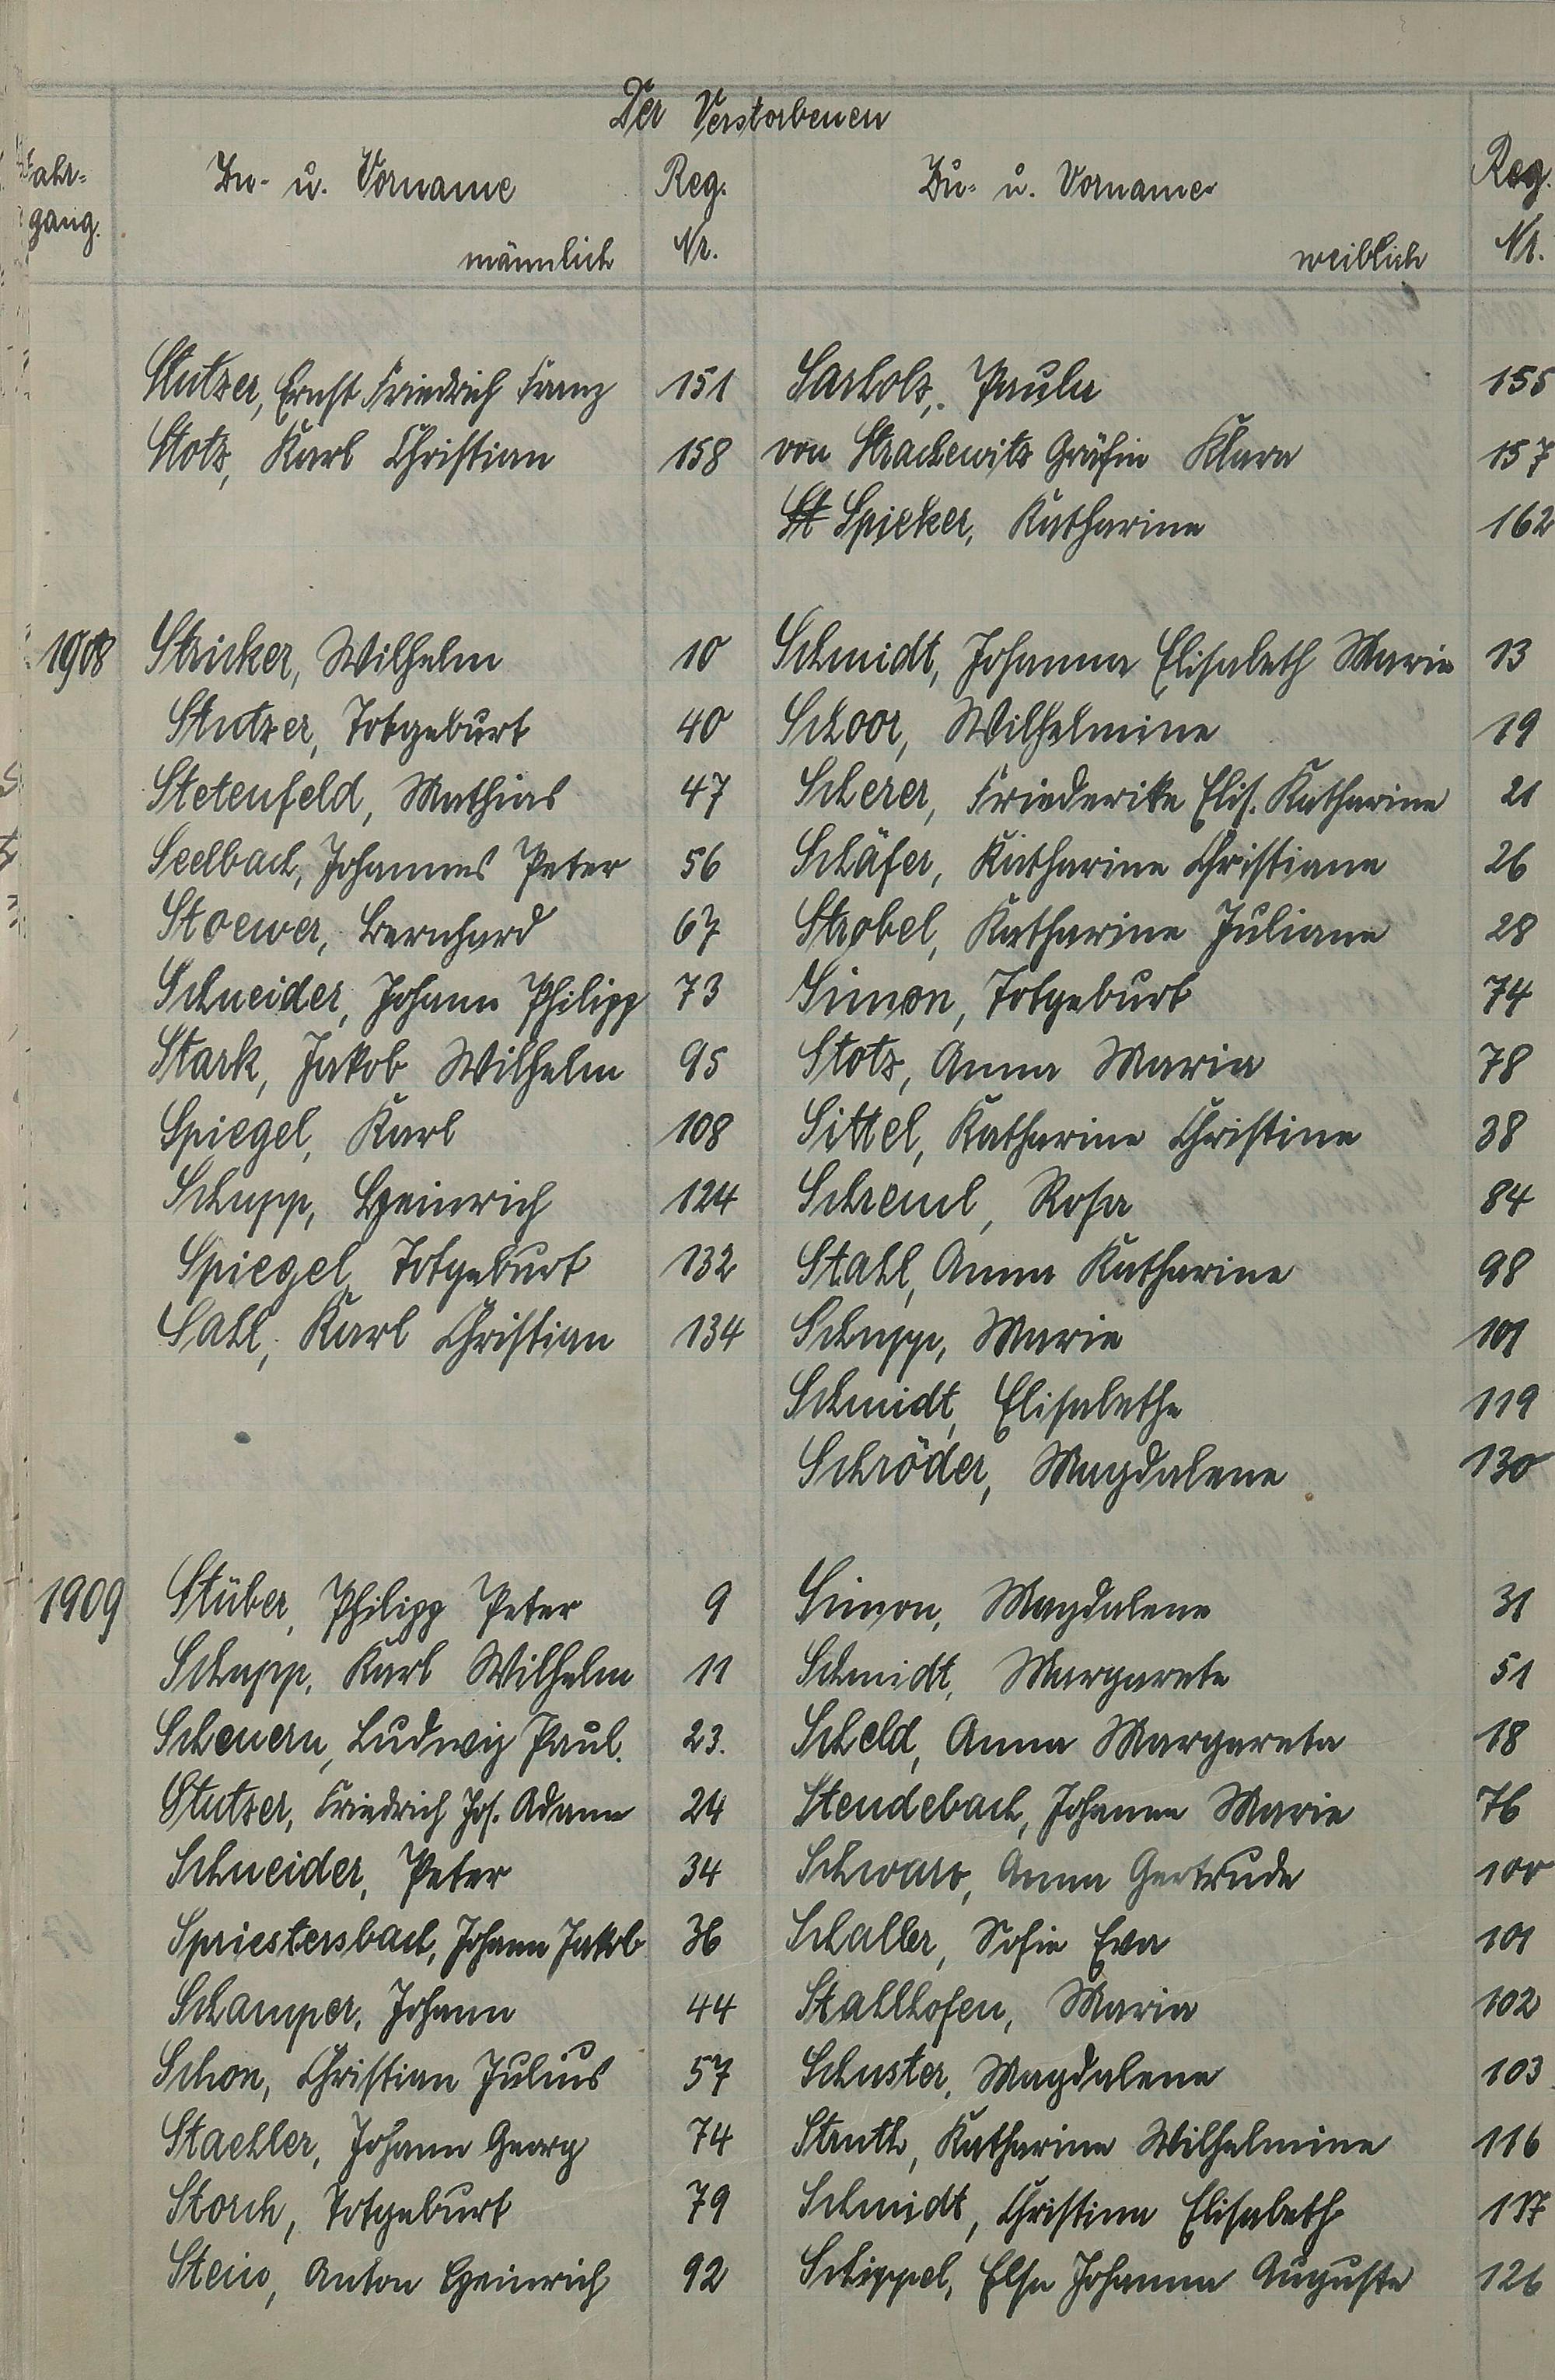 Der Verstorbenen
Jahr- Zu- u. Vorname Reg. Zu- u. Vorname Reg.
gang. männlich Nr. weiblich Nr.
Stutzer, Ernst Friedrich Franz 151 Sarholz, Paula 155
Stotz, Karl Christian 158 von Strachwitz Gräfin Klara 157
St Spieker, Katharine 162
1908 Stricker, Wilhelm 10 Schmidt, Johanna Elisabeth Marie 13
Stutzer, Totgeburt 40 Schoor, Wilhelmine 19
Stetenfeld, Mathias 47 Scherer, Friederike Elis. Katharine 21
Seelbach, Johannes Peter 56 Schäfer, Katharine Christiane 26
Stoewer, Bernhard 67 Strobel, Katharine Juliane 28
Schneider, Johann Philipp 73 Simon, Totgeburt 74
Stark, Jakob Wilhelm 95 Stotz, Anna Maria 78
Spiegel, Karl 108 Sittel, Katharine Christine 38
Schupp, Heinrich 124 Schreml, Rosa 84
Spiegel, Totgeburt 132 Stahl, Anna Katharine 98
Sahl, Karl Christian 134 Schupp, Marie 101
Schmidt, Elisabethe 119
Schröder, Magdalene 130
1909 Stüber, Philipp Peter 9 Simon, Magdalene 31
Schupp, Karl Wilhelm 11 Schmidt, Margarete 51
Scheuern, Ludwig Paul. 23. Scheld, Anna Margareta 18
Stutzer, Friedrich Jos. Adam 24 Steudebach, Johanna Marie 76
Schneider, Peter 34 Schwarz, Anna Gertrude 100
Spriestersbach, Johann Jakob 36 Schaller, Sofie Eva 101
Schamper, Johann 44 Stahlhofen, Maria 102
Schon, Christian Julius 57 Schuster, Magdalene 103
Staehler, Johann Georg 74 Struth, Katharine Wilhelmine 116
Storch, Totgeburt 79 Schmidt, Christine Elisabeth 117
Stein, Anton Heinrich 92 Schippel, Elsa Johanna Auguste 126